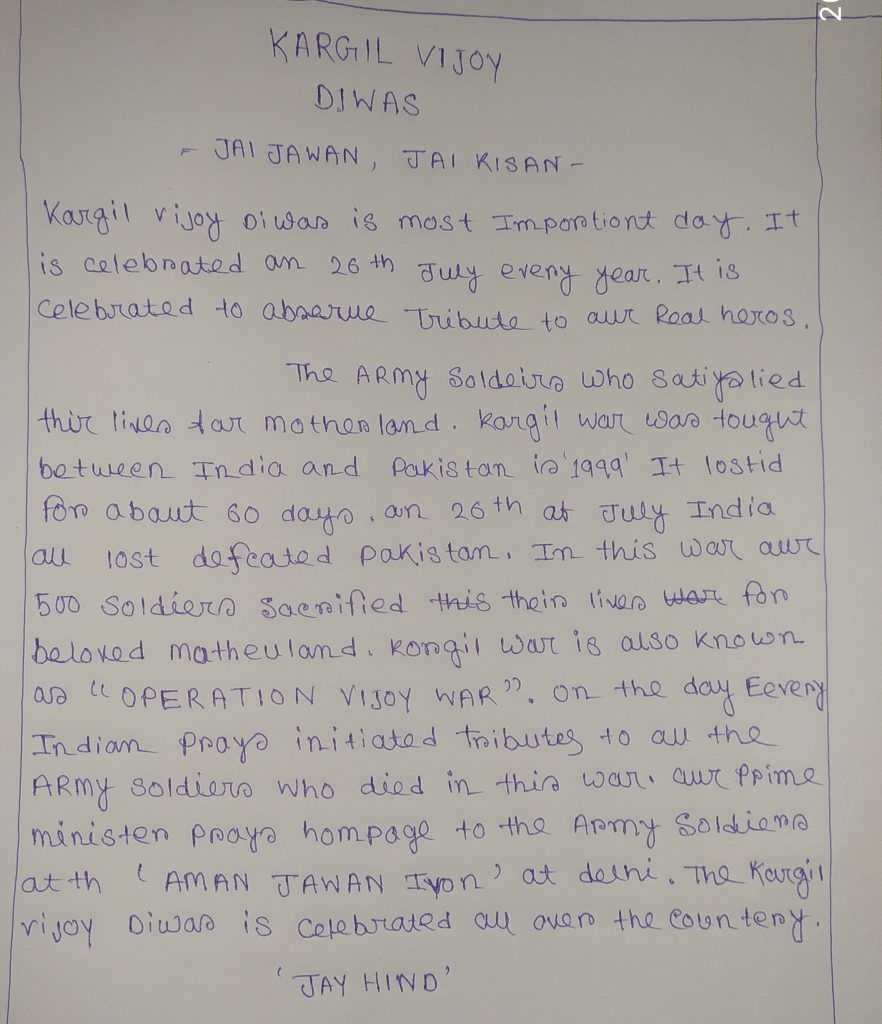 KARGIL VIJOY
DIWAS
- JAI JAWAN, JAI KISAN -
Kargil vijoy Diwas is most Imporotiont day. It
is celebroated an 26 th July eveny year. It is
Celebrated to absarue Tribute to aur Real heros.
The ARMy Soldeirs who satiyalied
thir lives tar mothersland. Kargil war was tought
between India and Pakistan is '1999' It lostid
foro abaut 60 days. an 26 th at July India
all lost defeated pakistan. In this war aur
500 soldiers sacnified this theiro lives war foro
beloved matheuland. Kongil war is also known
as "OPERATION VIJOY WAR". On the day Eeveny
Indian prays initiated tributes to all the
ARMy soldiers who died in this war. aur Ppime
ministero prays hompage to the Aromy Soldiers
at th 'AMAN JAWAN Iyon' at delhi. The Kargil
vijoy Diwas is Celebrated all overo the Counteroy.
'JAY HIND'
2